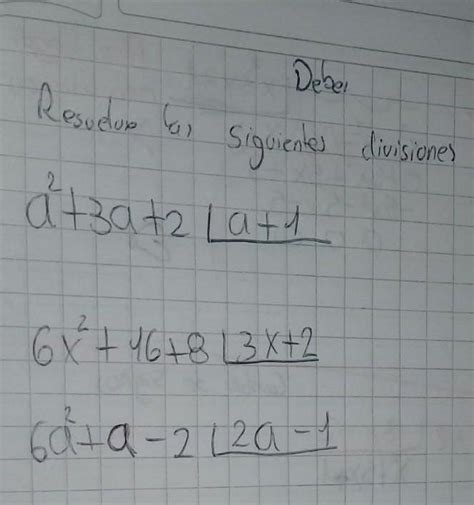 Deber
Resuelva las siguientes divisiones
a²+3a+2 | a+1
6x²+16+8 | 3x+2
6a²+a-2 | 2a-1